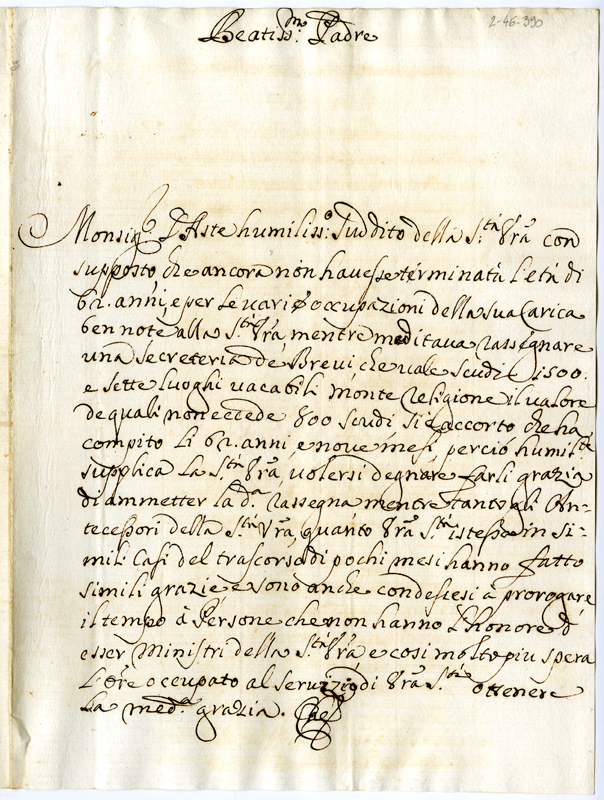 2-46-390
Beatiss.mo Padre
Monsig.r D'Aste humiliss.o suddito della S.tà Vra con
supposto che ancora non havesse terminata l'età di
62. anni, e per le varie occupazioni della sua Carica
ben note alla S.tà Vra, mentre meditava rassegnare
una secreteria de Brevi che vale scudi 1500.
e sette luoghi vacabili Monte Religione il valore
de quali non eccede 800 scudi si è accorto che ha
compito li 62. anni, e nove mesi, perciò humil.te
supplica la S.tà Vra, volersi degnare farli grazia
di ammetter la d.a rassegna mentre tanto gli An-
tecessori della S.tà Vra, quanto Vra S.tà istessa in si-
mili Casi del trascorso di pochi mesi hanno fatto
simili grazie e sono anche condescesi à prorogare
il tempo à Persone che non hanno l'honore d'
esser Ministri della S.tà Vra e così molto più spera
l'Ore occupato al servizio di Vra S.tà ottenere
la med.a grazia. Che